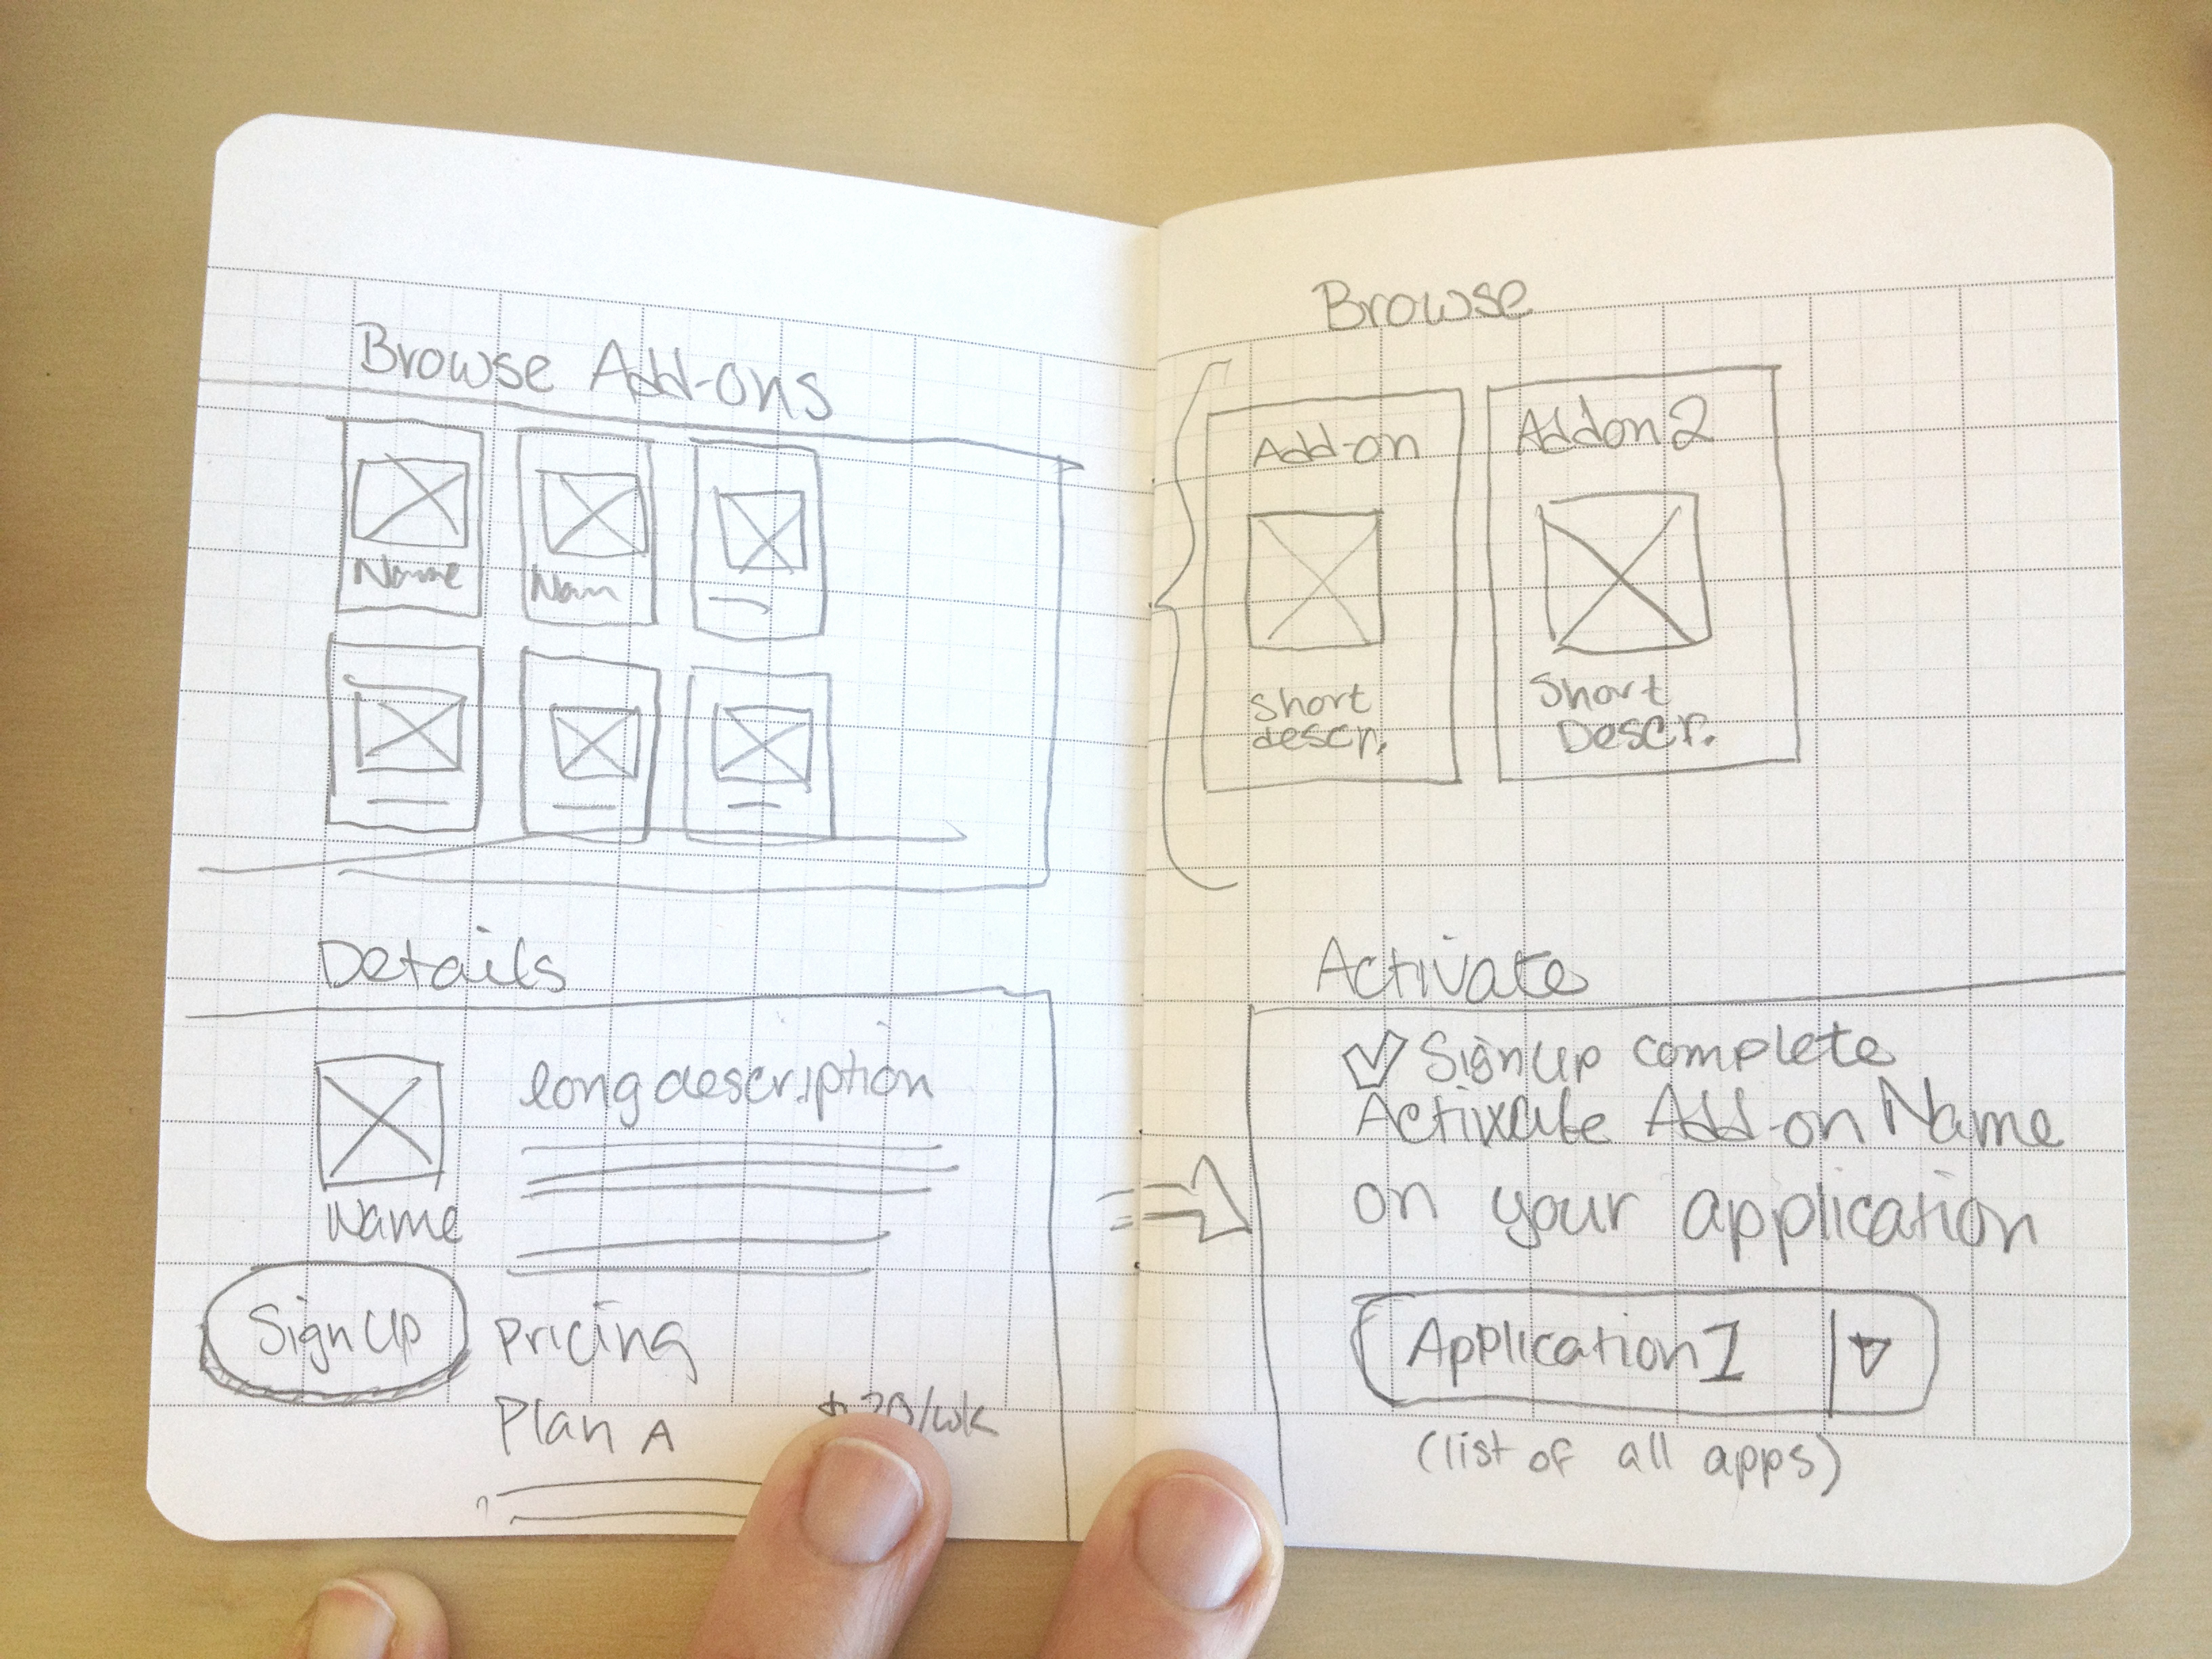 Browse Add-ons
Name
Nam
Details
long description
Name
Sign Up
Pricing
Plan A
/wk
Browse
Add-on
short
descr.
Addon 2
Short
Descr.
Activate
Signup complete
Activate Add-on Name
on your application
Application 1
(list of all apps)